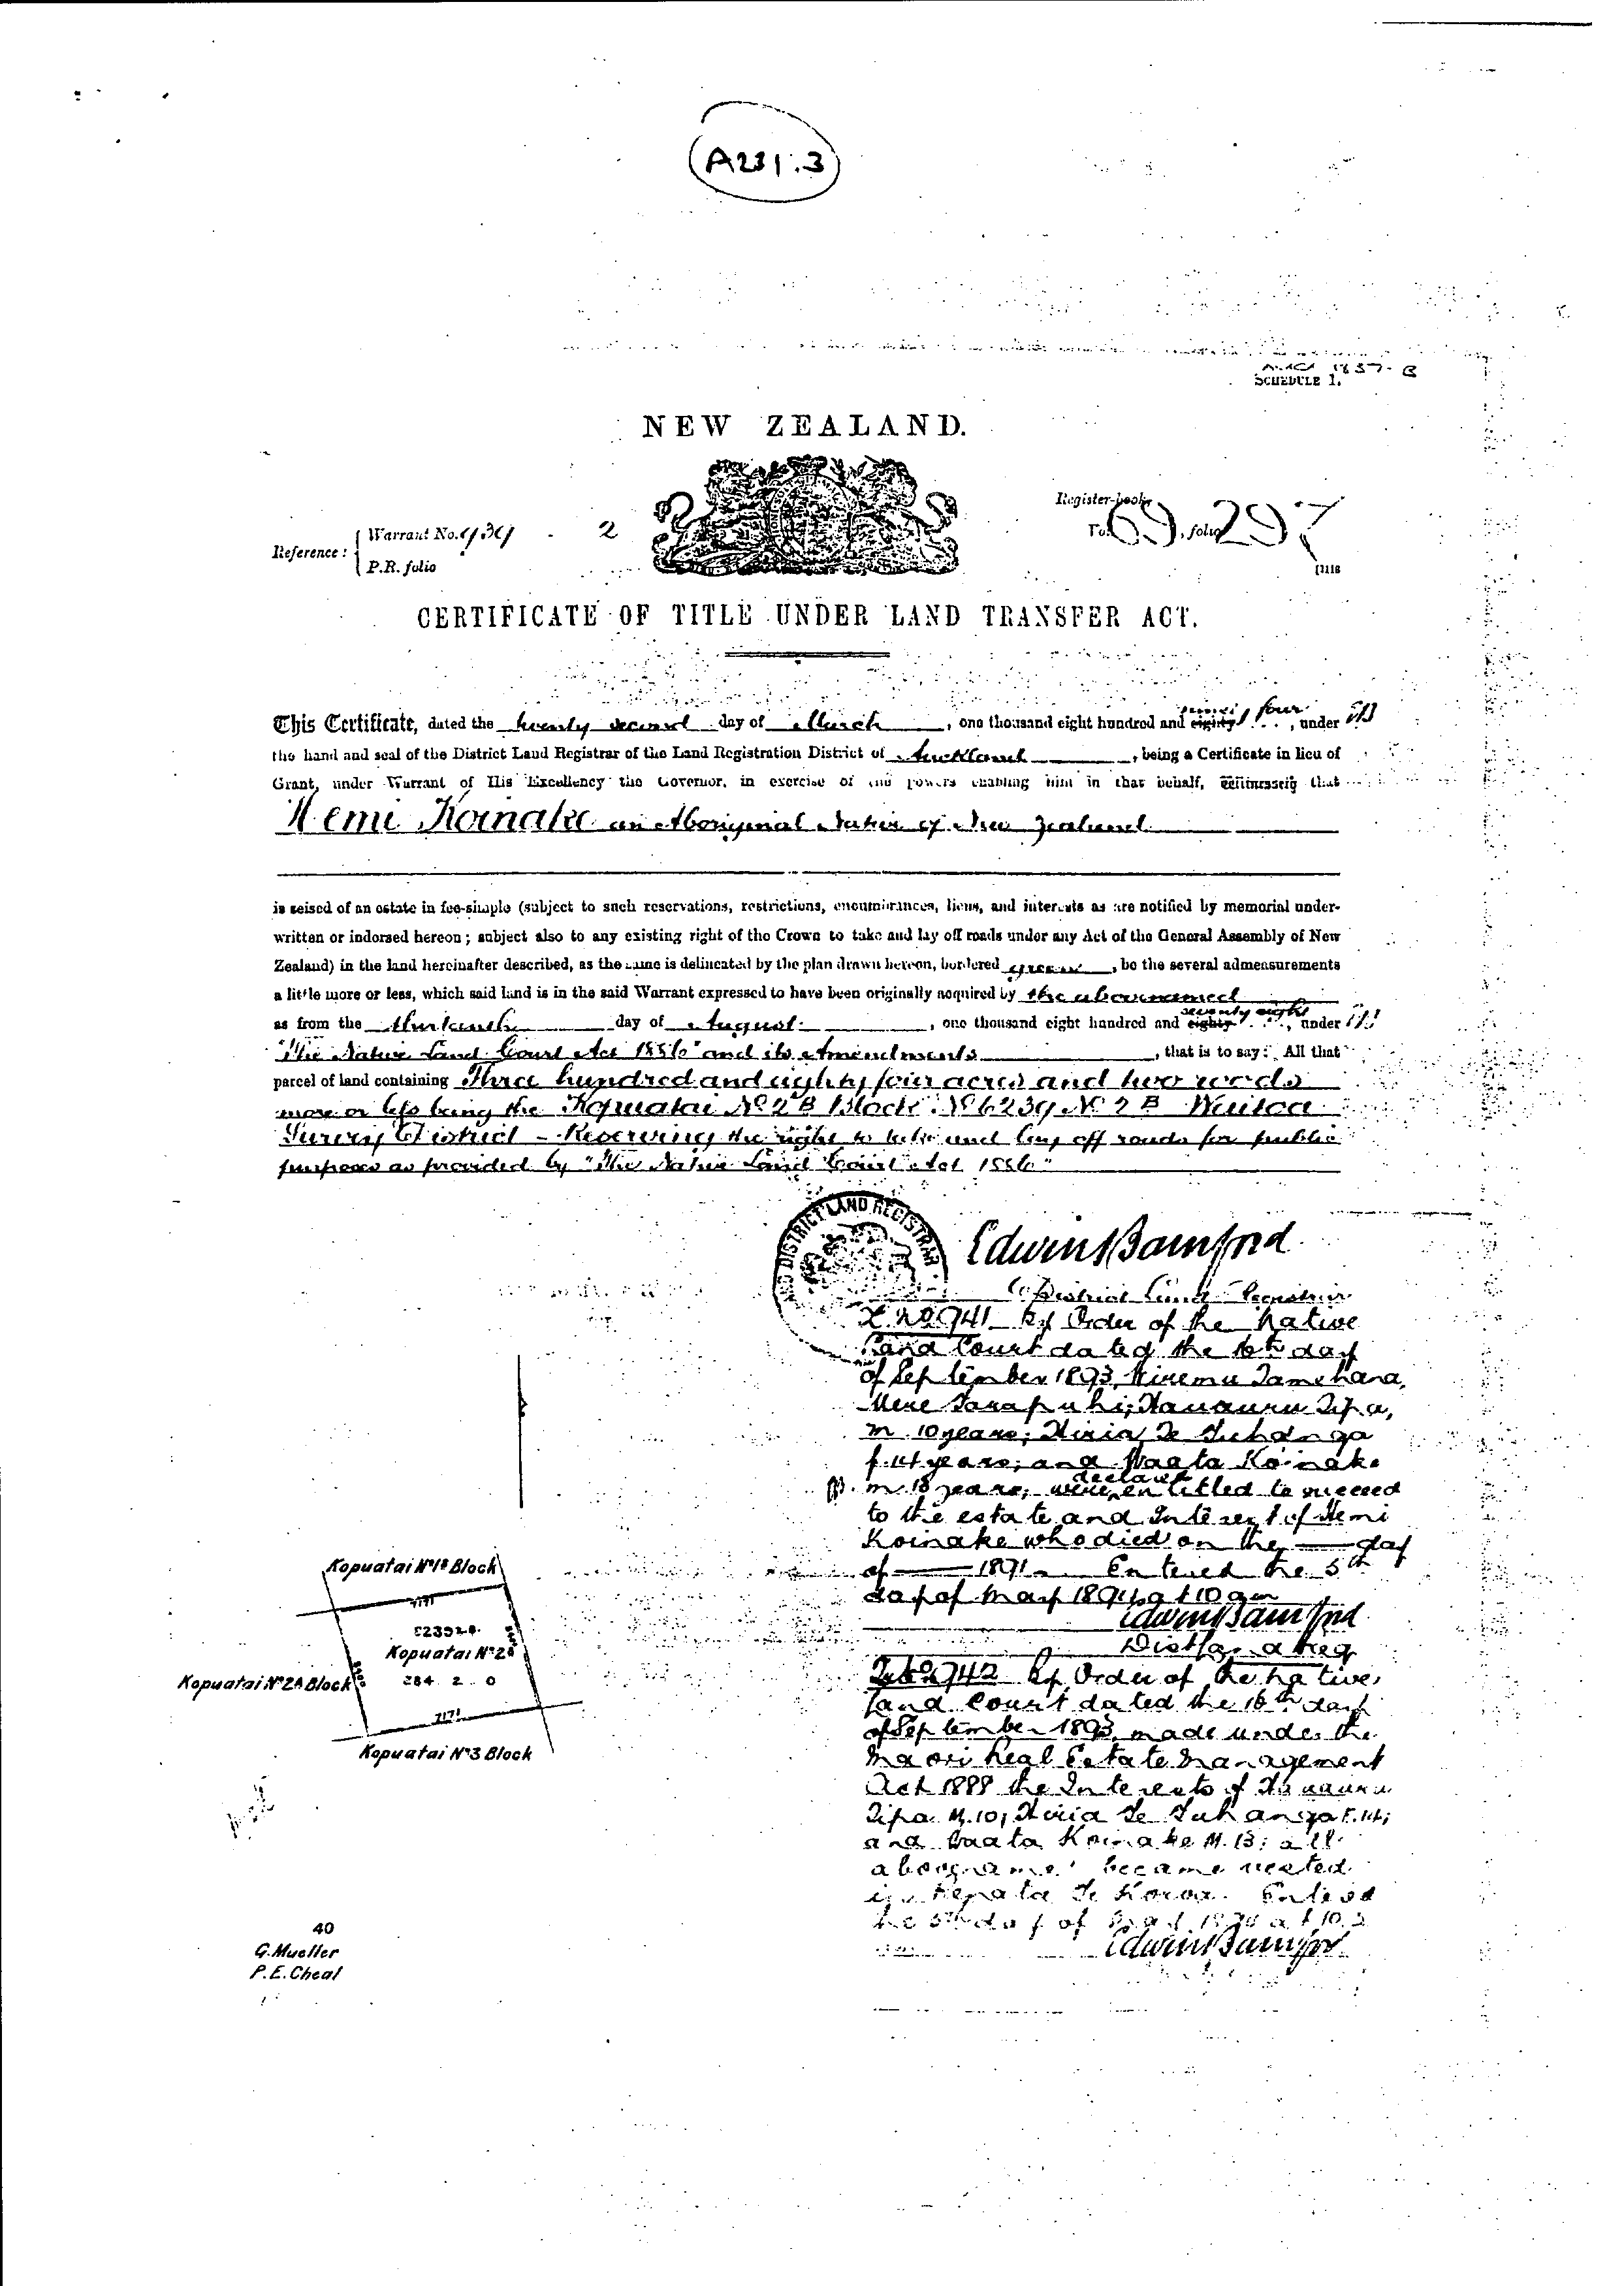 A231.3
SCHEDULE 1.
NEW ZEALAND.
Register-book,
Vol. 69, folio 297
Reference: Warrant No.
P.R. folio
2
CERTIFICATE OF TITLE UNDER LAND TRANSFER ACT.
This Certificate, dated the twenty second day of March, one thousand eight hundred and eighty ninety four, under
the hand and seal of the District Land Registrar of the Land Registration District of Auckland, being a Certificate in lieu of
Grant, under Warrant of His Excellency the Governor, in exercise of the powers enabling him in that behalf, Witnesseth that
Hemi Koinake an Aboriginal Native of New Zealand
is seised of an estate in fee-simple (subject to such reservations, restrictions, encumbrances, liens, and interests as are notified by memorial under-
written or indorsed hereon; subject also to any existing right of the Crown to take and lay off roads under any Act of the General Assembly of New
Zealand) in the land hereinafter described, as the same is delineated by the plan drawn hereon, bordered green, be the several admeasurements
a little more or less, which said land is in the said Warrant expressed to have been originally acquired by the abovenamed
as from the day of August, one thousand eight hundred and eighty seventy eight, under
"The Native Land Court Act 1886" and its Amendments, that is to say: All that
parcel of land containing Three hundred and eighty four acres and two roods
more or less being the Kopuatai No 2B Block No 6239 No 2B Waitoa
Survey District - Reserving the right to take and lay off roads for public
purposes as provided by "The Native Land Court Act 1886"
DISTRICT LAND REGISTRAR
Edwin Bamford
District Land Registrar
By Order of the Native
Land Court dated the 16th day
of September 1893, Wiremu Tamehana,
Mere Tarapuhi; Tipa,
m 10 years; Hiria Te Tuhanga
f. 14 years; and Waata Koinake
m. 13 years, were declared entitled to succeed
to the estate and Interest of Hemi
Koinake who died on the — day
of — 1891. Entered the 5th
day of May 1894 at 10 am
Edwin Bamford
Dist Land Reg
2742 By Order of the Native
Land Court dated the 16th day
of September 1893 made under the
Maori Real Estate Management
Act 1888 the Interests of
Tipa M. 10; Hiria Te Tuhanga F. 14;
and Waata Koinake M. 13; all
became vested
in Te Entered
the 5th day of May 1894 at 10
Edwin Bamford
Kopuatai No 1B Block
Kopuatai No 2B
Kopuatai No 2A Block
384 . 2 . 0
7171
Kopuatai No 3 Block
40
G. Mueller
P. E. Cheal